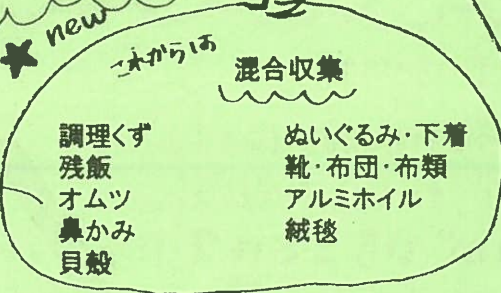 ★ new
これからは
混合収集
調理くず
残飯
オムツ
鼻かみ
貝殻
ぬいぐるみ・下着
靴・布団・布類
アルミホイル
絨毯